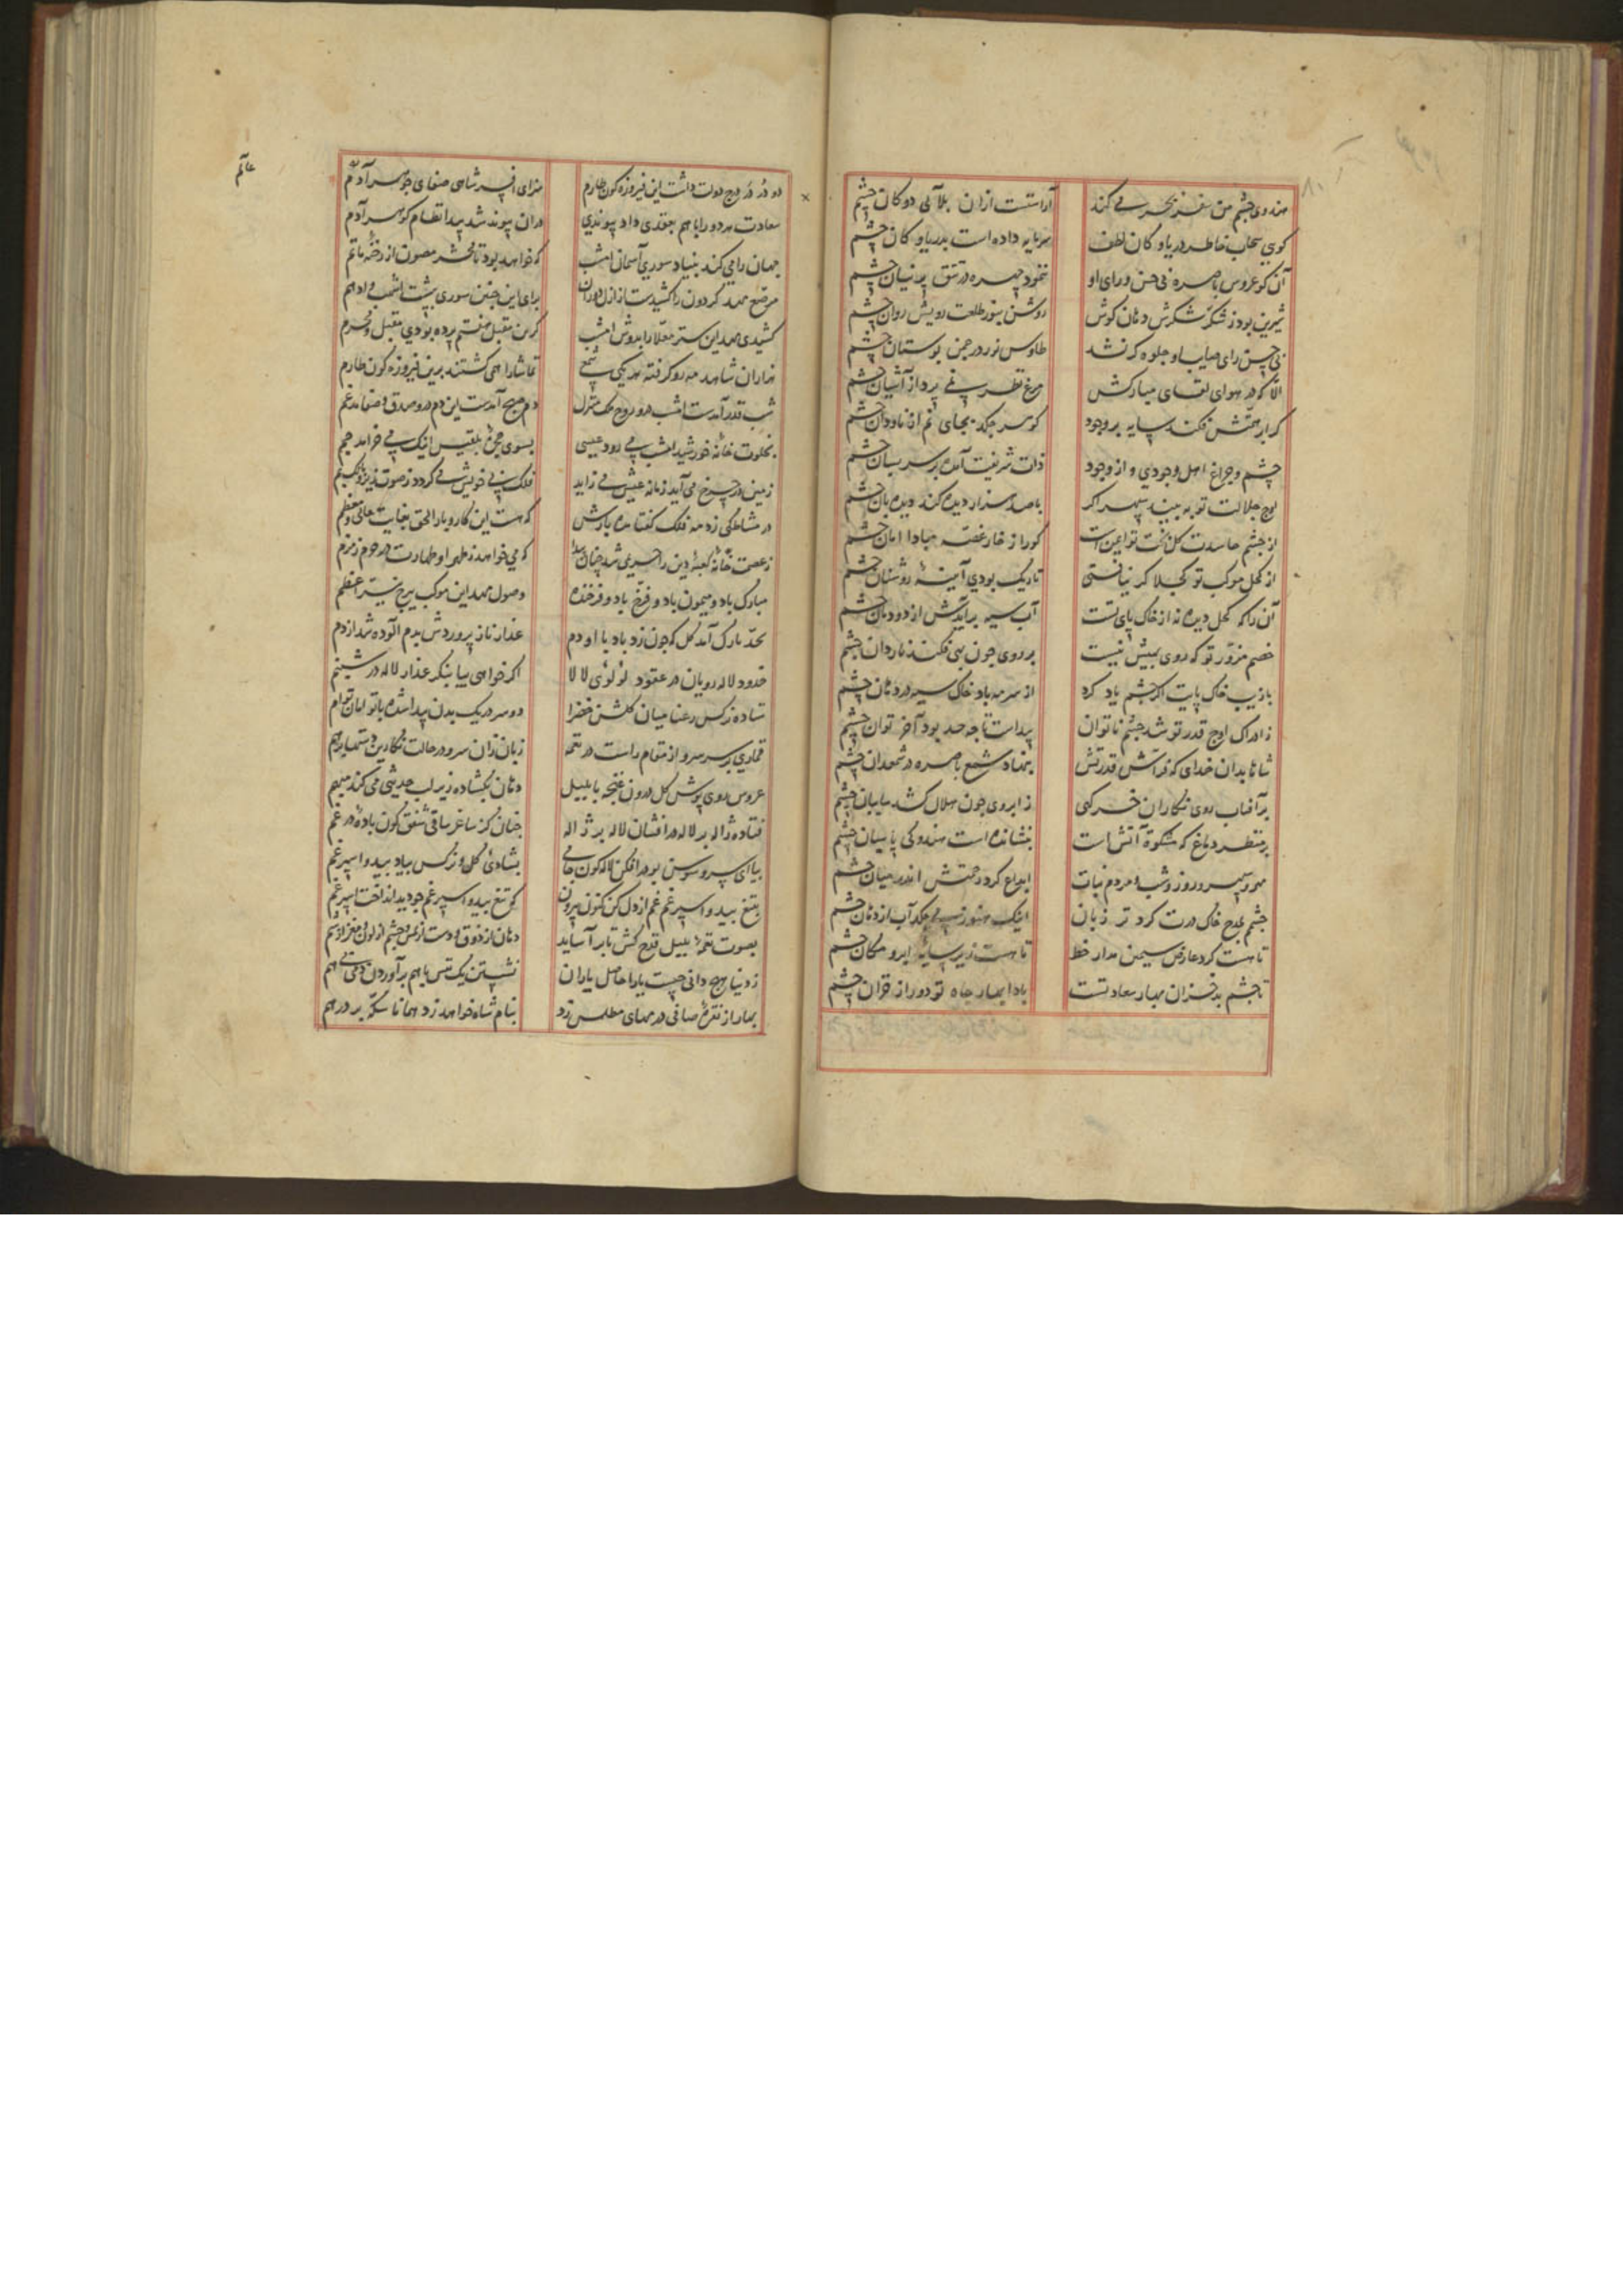 هندوی چشم من سفر بحر می‌کند آراستست ازان بلآلی دوکان چشم
کوی سحاب خاطر دریا و کان لطف سرمایه داده است بدریا و کان چشم
آن کو عروس باصره بی حسن و رای او ننمود چهره در تتق پرنیان چشم
شیرین بود ز شکر شکرش دهان گوش روشن بنور طلعت رویش روان چشم
بی چسن رای صیابا و جلوه کر نشد طاوس نور در چمن بوستان چشم
الا که در هوای لقای مبارکش مرغ نظر پرواز آشیان چشم
کر ابر همتش فکند سایه بر وجود کوهر چکد بجای نم از ناودان چشم
چشم و چراغ اهل وجودی و از وجود ذات شریفت آمده بر سر بسان چشم
اوج جلالت تو نه بیند سپهر اکر با صد هزار دیده کند دیده بان چشم
از چشم حاسدت کل بخت تو ایمن است کورا ز خار غصه مبادا امان چشم
از کحل موکب تو کجلا کر نیافتی تاریک بودی آینه روشنان چشم
آن را که کحل دیده نه از خاک پای تست آب سیه برآیدش از دودمان چشم
خصم مزور تو که روی بهیش نیست بر روی چون بهی فکند ناردان چشم
با زیب خاک پایت اکر چشم یاد کرد از سرمه باد خاک سیه در دهان چشم
ز ادراک اوج قدر تو شد چشم ناتوان پیداست تا چه حد بود آخر توان چشم
شاها بدان خدای که فراش قدرتش بنهاد شمع باصره در شمعدان چشم
بر آفتاب روی نکاران خرکهی ز ابروی چون هلال کشد سایبان چشم
بر منظر دماغ که مشکوة آتش است بنشانده است هندوکی پاسبان چشم
مهر و سپهر و روز و شب و مردم نبات ابداع کرد رحمتش اندر میان چشم
چشم بمدح خاک درت کرد تر زبان اینک هنوز می چکد آب از دهان چشم
تا هست کرد عارض سیمین مدار خط تا هست زیر سایه ابرو مکان چشم
تا چشم بد خزان بهار سعادتست بادا بهار جاه تو دور از قران چشم
دو در در درج دولت داشت این فیروزه کون طارم سزای افسر شاهی صفای جوهر آدم
سعادت هر دو را با هم بعقدی داد پیوندی دران پیوند شد پیدا نظام کوهر آدم
جهان را می کند بنیاد سوری آسمان امشب که خواهد بود تا محشر مصون از رخنه ماتم
مرصع مهد کردون را کشیدست از ازل دوران برای این چنین سوری بپشت اشهب و ادهم
کشیدی مهد این ستر معلا را بدوش امشب کرین مقبل هفتم پرده بودی مقبل و محرم
هزاران شاهد مه رو کرفته هر یکی شمعی تماشا را همی کشتند برین فیروزه کون طارم
شب قدر آمدست امشب درو روح ملک منزل دم صبح آمدست این دم درو صدق و صفا مدغم
بخلوت خانه خورشید امشب می رود عیسی بسوی حجره بلقیس اینک می خرامد جم
زمین در چرخ می آید زمانه عیش می زاید فلک بی خویش می کردد ز صوت زیر و کهی بم
در مشاطکی زد مه فلک کفتا مده بارش که هست این کار و بار الحق بغایت عالی و معظم
ز عصمت خانه کعبه دین را حریمی شد چنان پیدا که می خواهد ز طهر او طهارت در حرم زمزم
مبارک باد و میمون باد و فرخ باد و فرخنده وصول مهد این موکب ببرج نیر اعظم
بحد نازک آمد کل که چون زد باد با او دم عذار ناز پروردش بدم آلوده شد از دم
خدود لاله رویان در عقود لولوی لالا اکر خواهی بیا بنکر عذار لاله در شبنم
ستاده نرکس رعنا میان کلشن خضرا دو سر در یک بدن پیدا شده با توامان توام
قماری بر سر سرو از مقام راست در نغمه زبان زان سرو در حالت
عروس روی پوش کل درون غنچه با بلبل دهان بکشاده زیر لب حدیثی می کند مبهم
فتاده ژاله بر لاله در افشان لاله بر ژاله چنان کز ساغر ساقی شفق کون باده در غم
بیا ای سرو سوسن بو در افکن لاله کون جامی بشادی کل و نرکس بیاد بید و اسپرغم
بتیغ بید و اسپرغم غم از دل کن کنون بیرون که تیغ بید و اسپرغم چو دید انداخت اسپر غم
بصوت نغمه بلبل قدح کش تا بر آساید دهان از ذوق و دست از لمس و چشم از لون و مغز از شم
ز دنیا هیچ دانی چیست یارا حاصل یاران نشستن یک نفس با هم برآوردن دمی بی هم
بهار از نقره صافی درمهای مطلس زد بنام شاه خواهد زد همانا سکه بر درهم
عالم